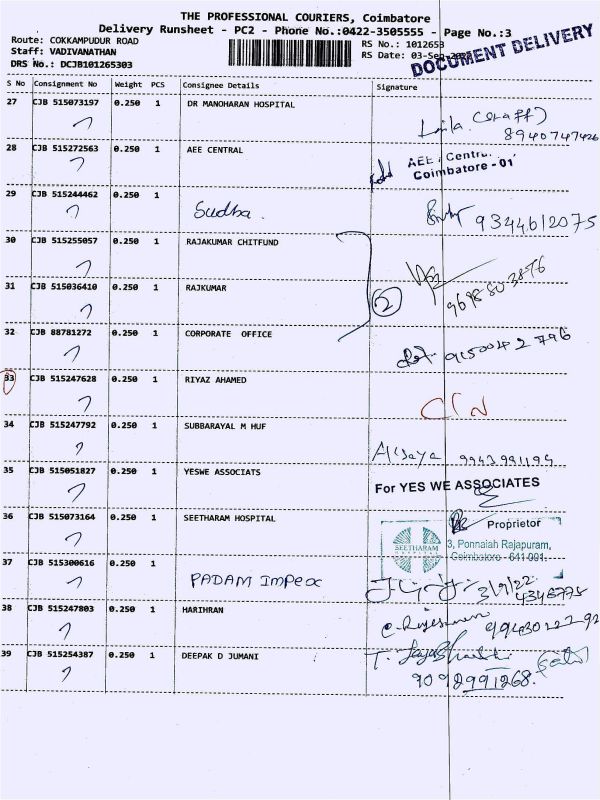 THE PROFESSIONAL COURIERS, Coimbatore
Delivery Runsheet - PC2 - Phone No.:0422-3505555 - Page No.:3
Route: COKKAMPUDUR ROAD
Staff: VADIVANATHAN
DRS No.: DCJB101265303
RS No.: 1012653
RS Date: 03-Sep-
DOCUMENT DELIVERY
S No Consignment No Weight PCS Consignee Details Signature
27 CJB 515073197 0.250 1 DR MANOHARAN HOSPITAL
Leila (Staff)
8940747426
28 CJB 515272563 0.250 1 AEE CENTRAL
AEE Central
Coimbatore - 01
29 CJB 515244462 0.250 1
Sudha. 9344612075
30 CJB 515255057 0.250 1 RAJAKUMAR CHITFUND
31 CJB 515036410 0.250 1 RAJKUMAR
2 9698803876
32 CJB 88781272 0.250 1 CORPORATE OFFICE
9150042796
33 CJB 515247628 0.250 1 RIYAZ AHAMED
34 CJB 515247792 0.250 1 SUBBARAYAL M HUF
9943991194
35 CJB 515051827 0.250 1 YESWE ASSOCIATS
For YES WE ASSOCIATES
Proprietor
36 CJB 515073164 0.250 1 SEETHARAM HOSPITAL
SEETHARAM
HOSPITAL
3, Ponnaiah Rajapuram,
Coimbatore - 641 001.
37 CJB 515300616 0.250 1
PADAM Impex 3/9/22
38 CJB 515247803 0.250 1 HARIHRAN
39 CJB 515254387 0.250 1 DEEPAK D JUMANI
9092991268.